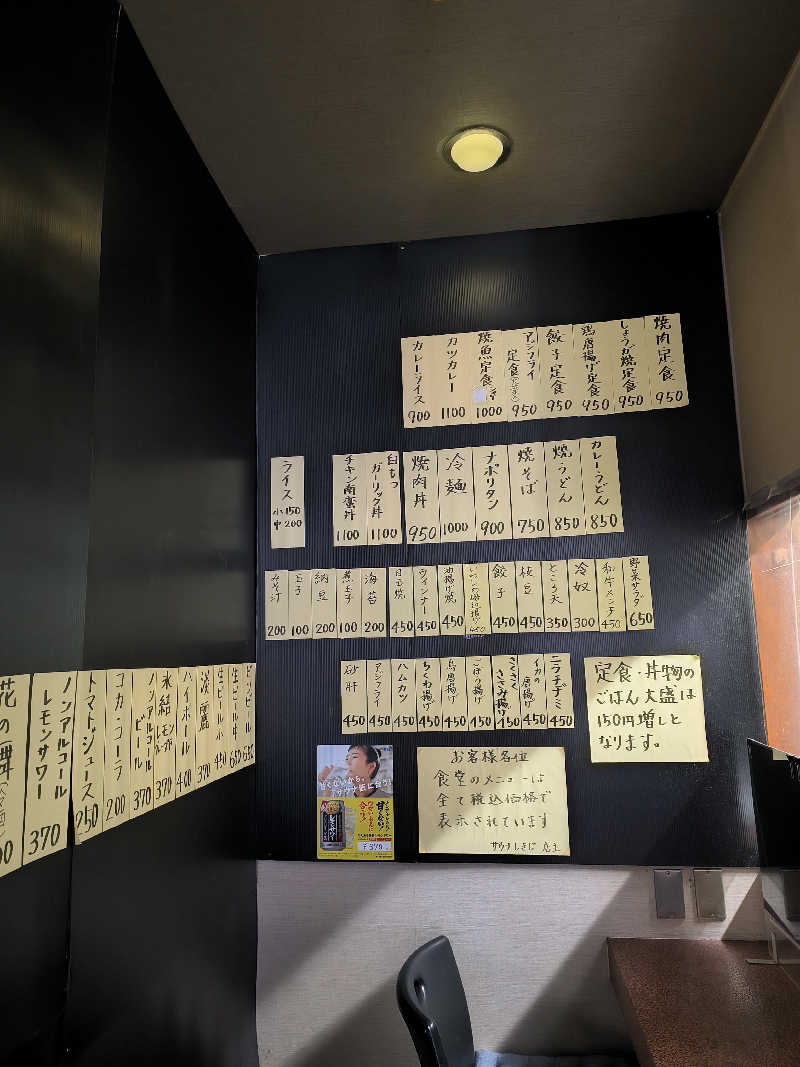 焼肉定食 950
しょうが焼定食 950
鶏唐揚げ定食 950
餃子定食 950
アジフライ定食 950
焼魚定食 1000
カツカレー 1100
カレーライス 900
カレーうどん 850
焼うどん 850
焼そば 750
ナポリタン 900
冷麺 1000
焼肉丼 950
白もつガーリック丼 1100
チキン南蛮丼 1100
ライス 小150 中200
野菜サラダ 650
和牛メンチ 450
冷奴 300
ところ天 350
枝豆 450
餃子 450
油揚げ焼 450
ウィンナー 450
目玉焼 450
海苔 200
煮玉子 100
納豆 200
玉子 100
みそ汁 200
ニラチヂミ 450
イカの唐揚げ 450
さくさくささみ揚げ 450
ごぼう揚げ 450
鳥唐揚げ 450
ちくわ揚げ 450
ハムカツ 450
アジフライ 450
砂肝 450
定食・丼物の
ごはん大盛は
150円増しと
なります。
お客様各位
食堂のメニューは
全て税込価格で
表示されています
サウナしきじ 店主
甘くないから、
サウナ後に合う!
¥370
ビンビール 650
生ビール中 650
生ビール小 450
淡麗 370
ハイボール 400
氷結レモン 370
ノンアルコールビール 370
コカ・コーラ 200
トマトジュース 250
ノンアルコールレモンサワー 370
花の舞